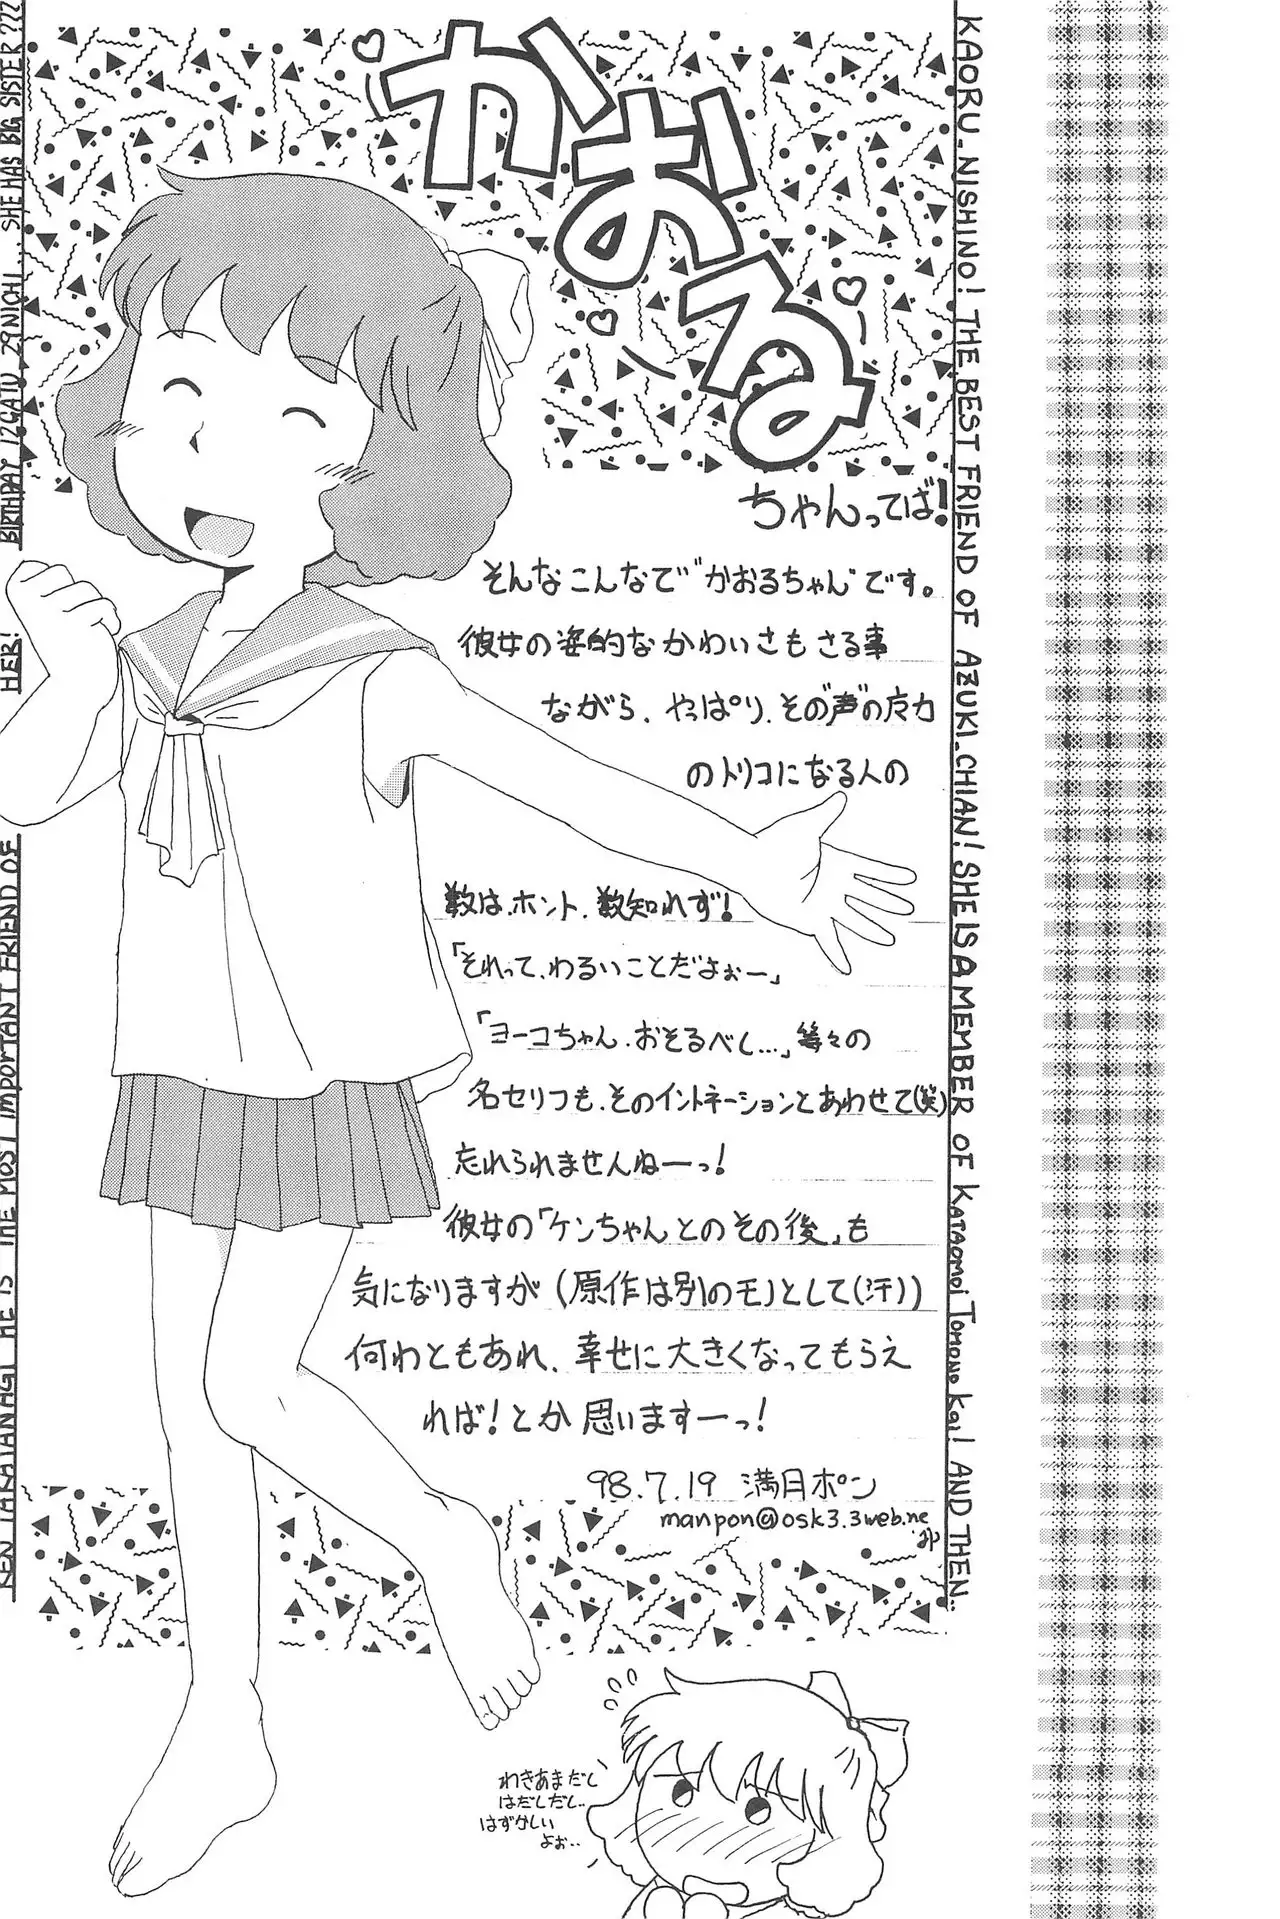 かおる
ちゃんってば!
そんなこんなで"かおるちゃん"です。
彼女の姿的なかわいさもさる事
ながら、やっぱり、その"声"の魔力
のトリコになる人の
数は、ホント、数知れず!
「それって、わるいことだよぉー」
「ヨーコちゃん、おそるべし…」等々の
名セリフも、そのイントネーションとあわせて(笑)
忘れられませんねーっ!
彼女の「ケンちゃんとのその後」も
気になりますが(原作は別のモノとして(汗))
何わともあれ、幸せに大きくなってもらえ
れば!とか思いますーっ!
98.7.19 満月ポン
manpon@osk3.3web.ne
.jp
わきあまだし
はだしだし..
はずかしい
よぉ..
KAORU_NISHINO! THE BEST FRIEND OF AZUKI_CHIAN! SHE IS A MEMBER OF KATAOMOI TOMONO KAI! AND THEN..
KEN TAKAYANAGI HE IS THE MOST IMPORTANT FRIEND OF HER! BIRTHDAY 12GATU_29NICHI... SHE HAS BIG SISTER ???